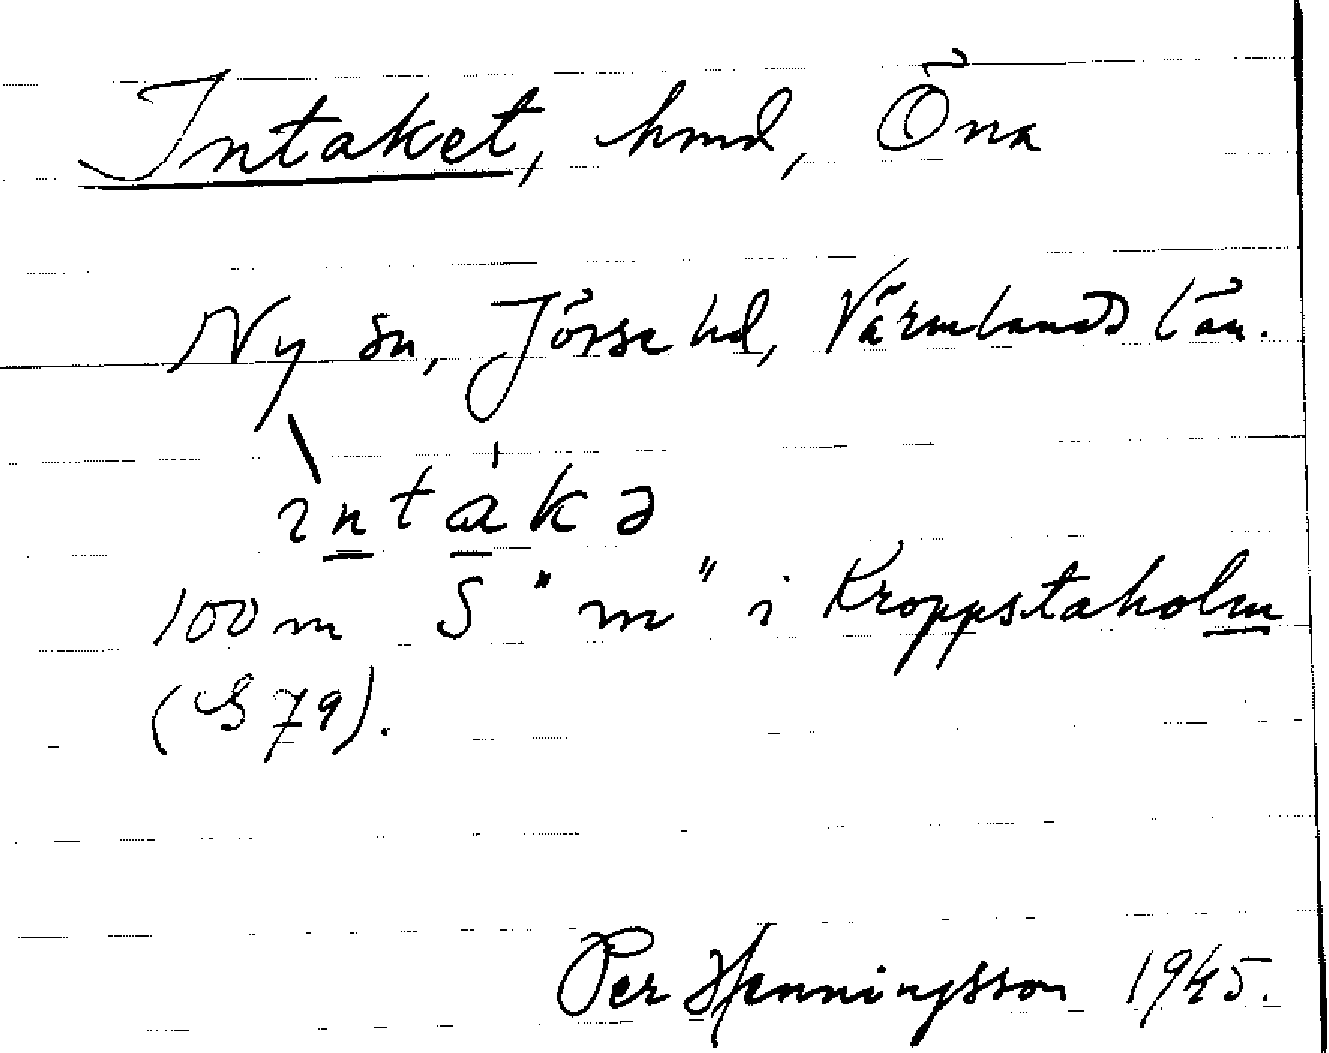 Intaket, hmd, Öna
Ny sn, Jösse hd, Värmlands län.
ìntàkə
100 m S "m" i Kroppstaholm
(S 79).
Per Henningsson 1945.